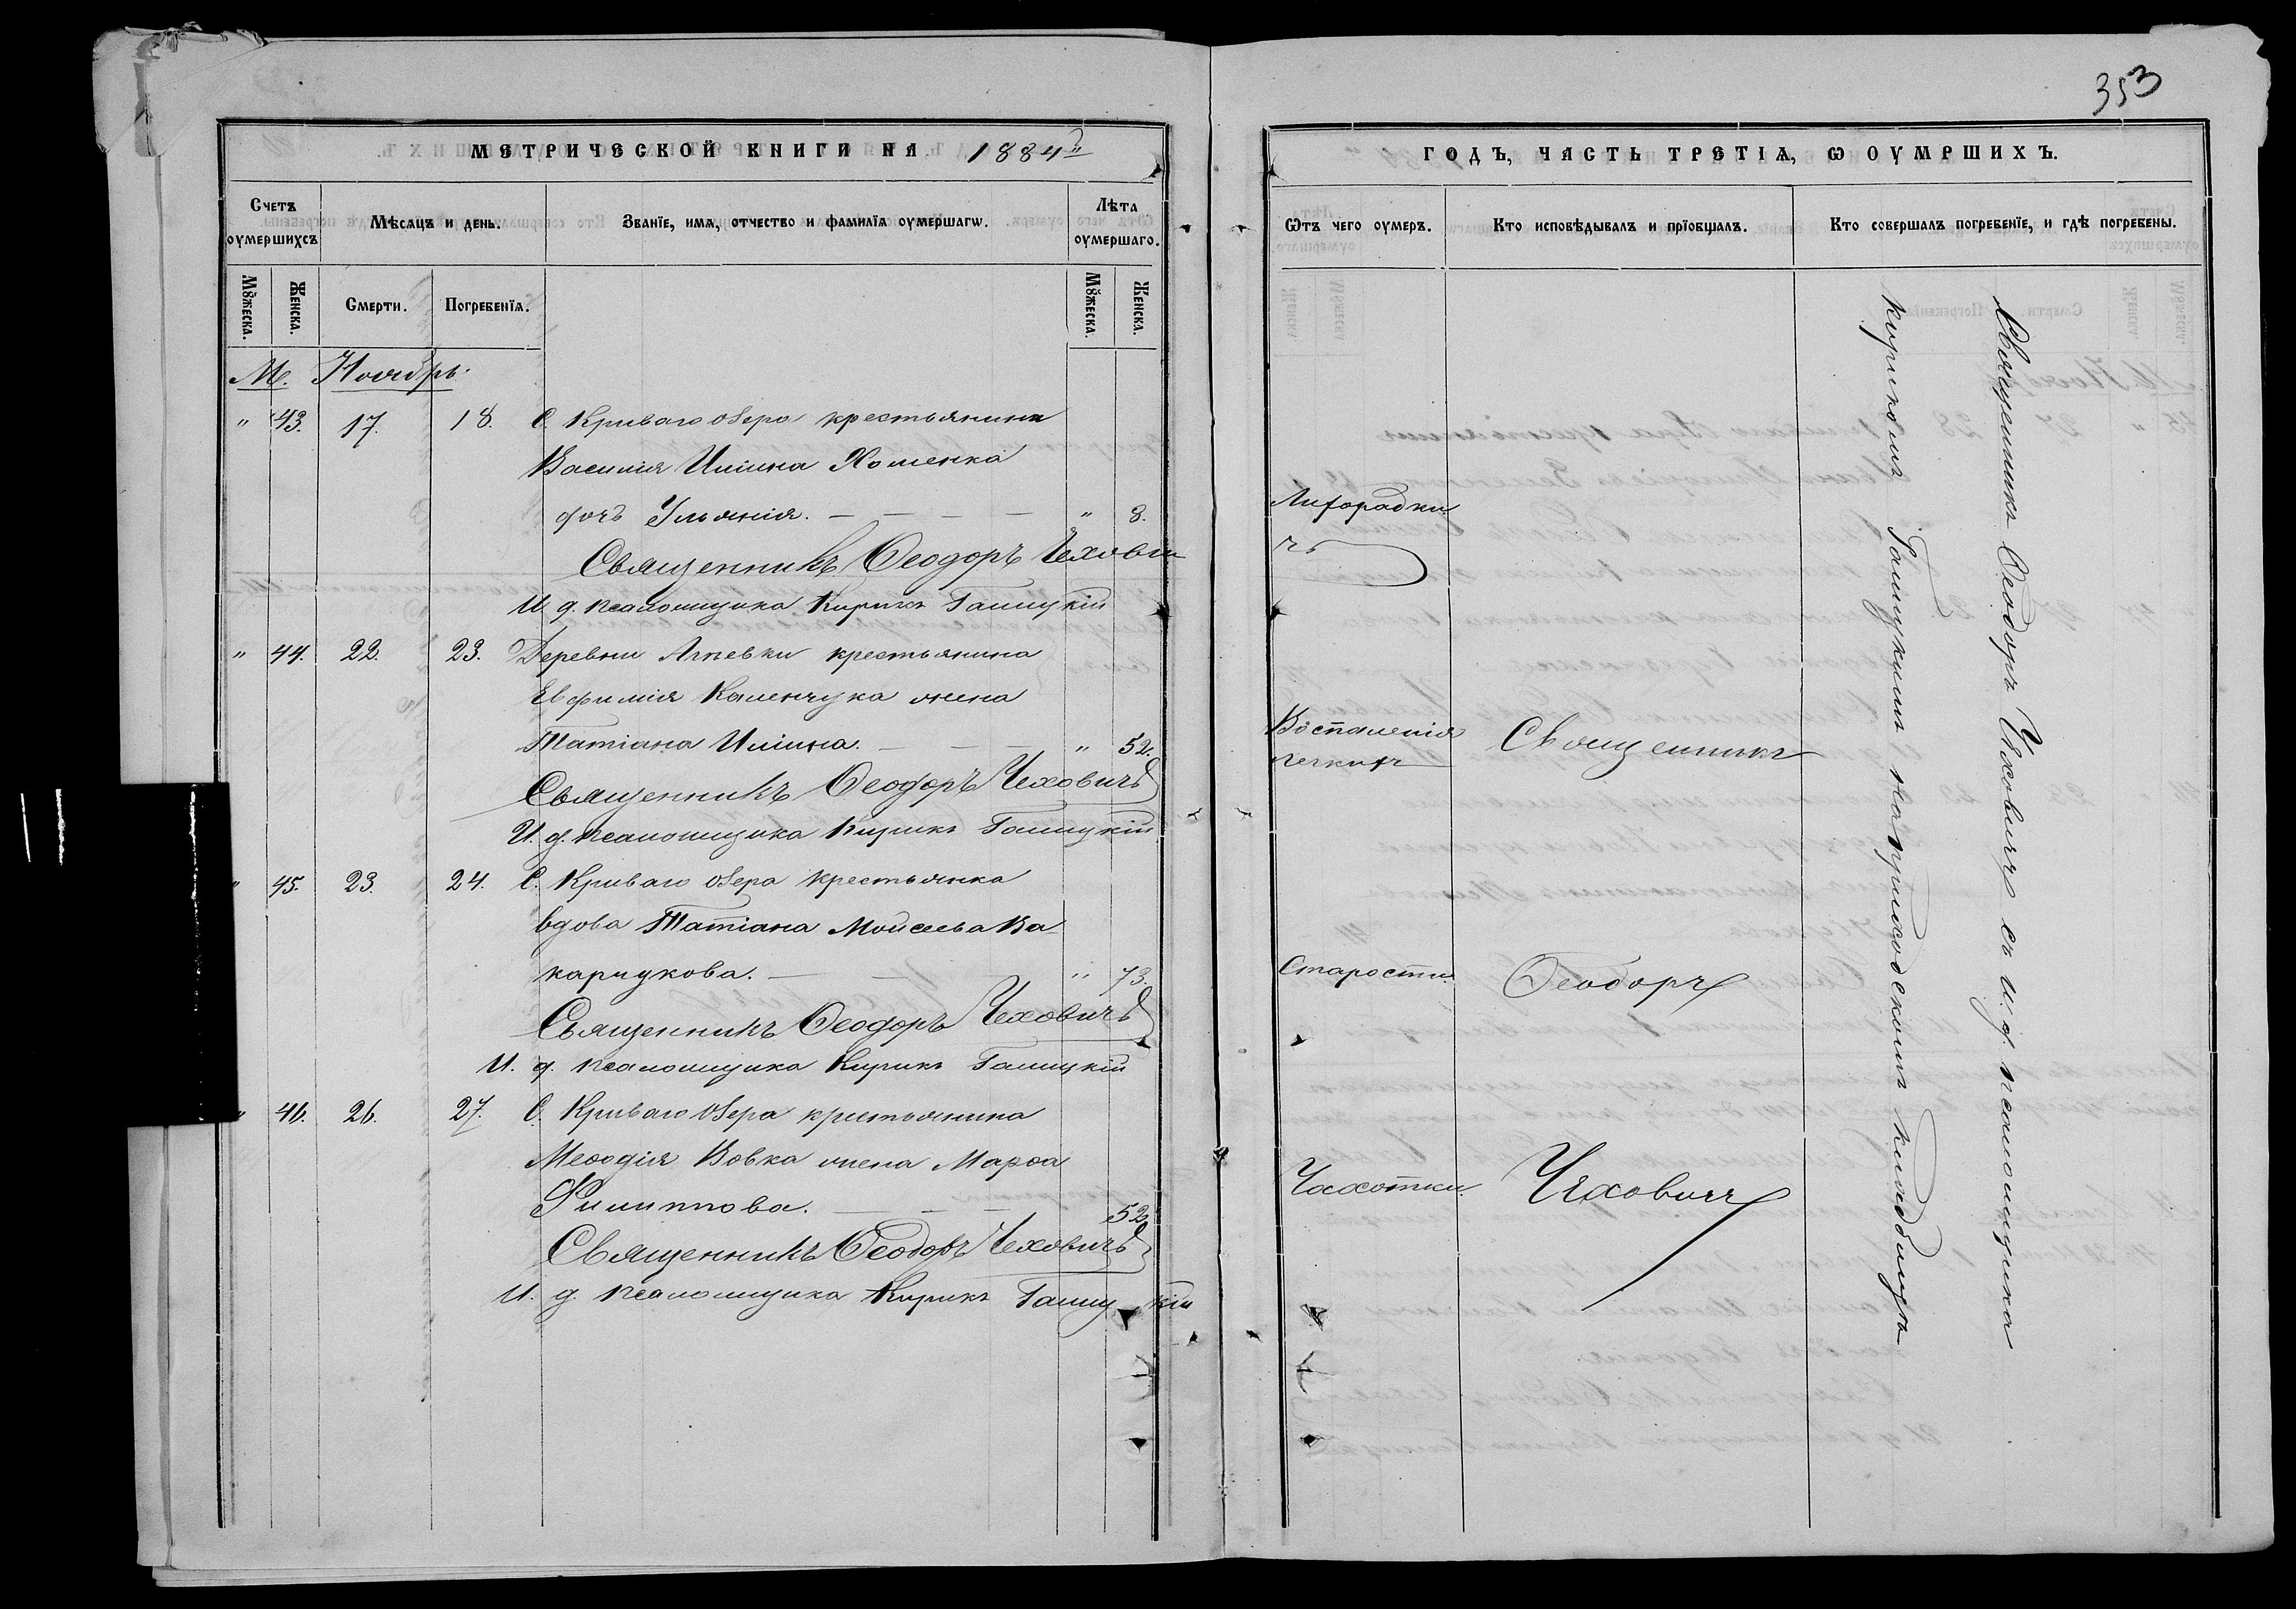 МЕТРИЧЕСКОЙ КНИГИ НА 1884й
Счетъ оумершихсѧ
Мѣсѧцъ и день.
Званїе, имѧ, отчество и фамилїѧ оумершагѡ.
Лѣта оумершаго.
Мꙋжеска.
Женска.
Смерти.
Погребенїѧ.
Мꙋжеска.
Женска.
М. Ноябрь.
" 43. 17. 18. С. Криваго Озера крестьянина
Василія Иліина Хоменка
дочь Ульянія. — — — — " 8.
Священникъ Ѳеодоръ Чехович
И. д. псаломщика Кирикъ Галицкій
" 44. 22. 23. Деревни крестьянина
Евфимія Каленчука жена
Татіана Иліина. — — — " 52.
Священникъ Ѳеодоръ Чеховичъ
И. д. псаломщика Кирикъ Галицкій
" 45. 23. 24. С. Криваго Озера крестьянка
вдова Татіана Мойсеева Ва-
карчукова. — — — " 73.
Священникъ Ѳеодоръ Чеховичъ
И. д. псаломщика Кирикъ Галицкій
" 46. 26. 27. С. Криваго Озера крестьянина
Меѳодія Вовка жена Марѳа
Филиппова. — — — 52
Священникъ Ѳеодоръ Чеховичъ
И. д. псаломщика Кирикъ Галицкій
353
ГОДЪ, ЧАСТЬ ТРЕТІѦ, Ѡ ОУМРШИХЪ.
Ѿтъ чего оумеръ.
Кто исповѣдывалъ и прїобщалъ.
Кто совершалъ погребенїе, и гдѣ погребены.
Лихорадки
Воспаленія
легкихъ
Священникъ
Старости.
Ѳеодоръ
Чахотки.
Чеховичъ
Священникъ Ѳеодоръ Чеховичъ съ И. д. псаломщика
Кирикомъ Галицкимъ на приходскомъ кладбищѣ